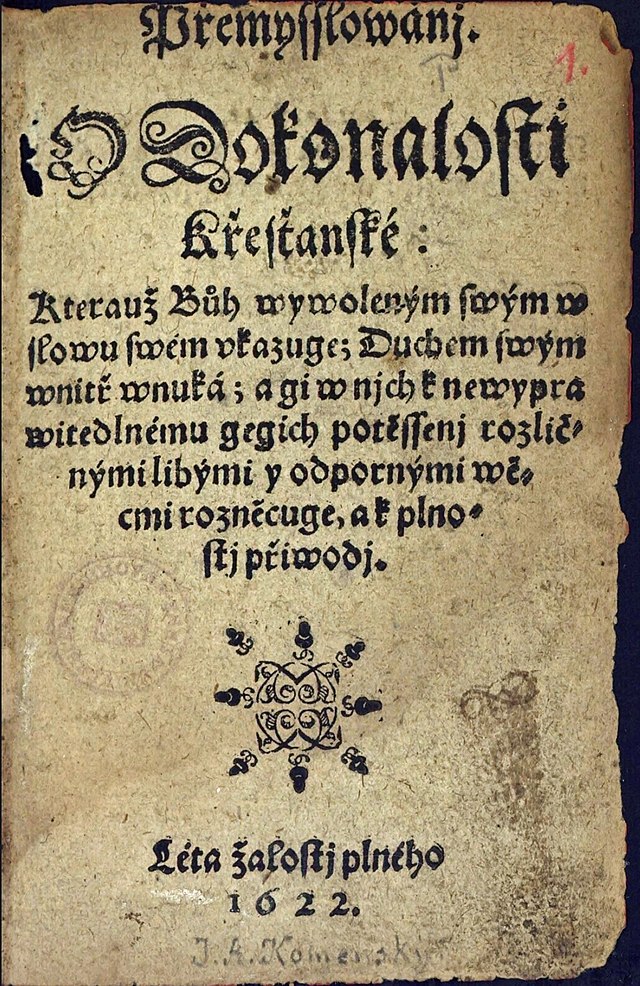 Přemyſſlowánj.
1.
O Dokonaloſti
Křeſťanſké :
Kterauž Bůh wywoleným ſwým w
ſlowu ſwém vkazuge; Duchem ſwým
wnitř wnuká ; a gi w njch k newypra
witedlnému gegich potěſſenj rozlič-
nými libými y odpornými wě-
cmi rozněcuge, a k plno-
ſtj přiwodj.
Léta žaloſtj plného
1622.
J. A. Komenský